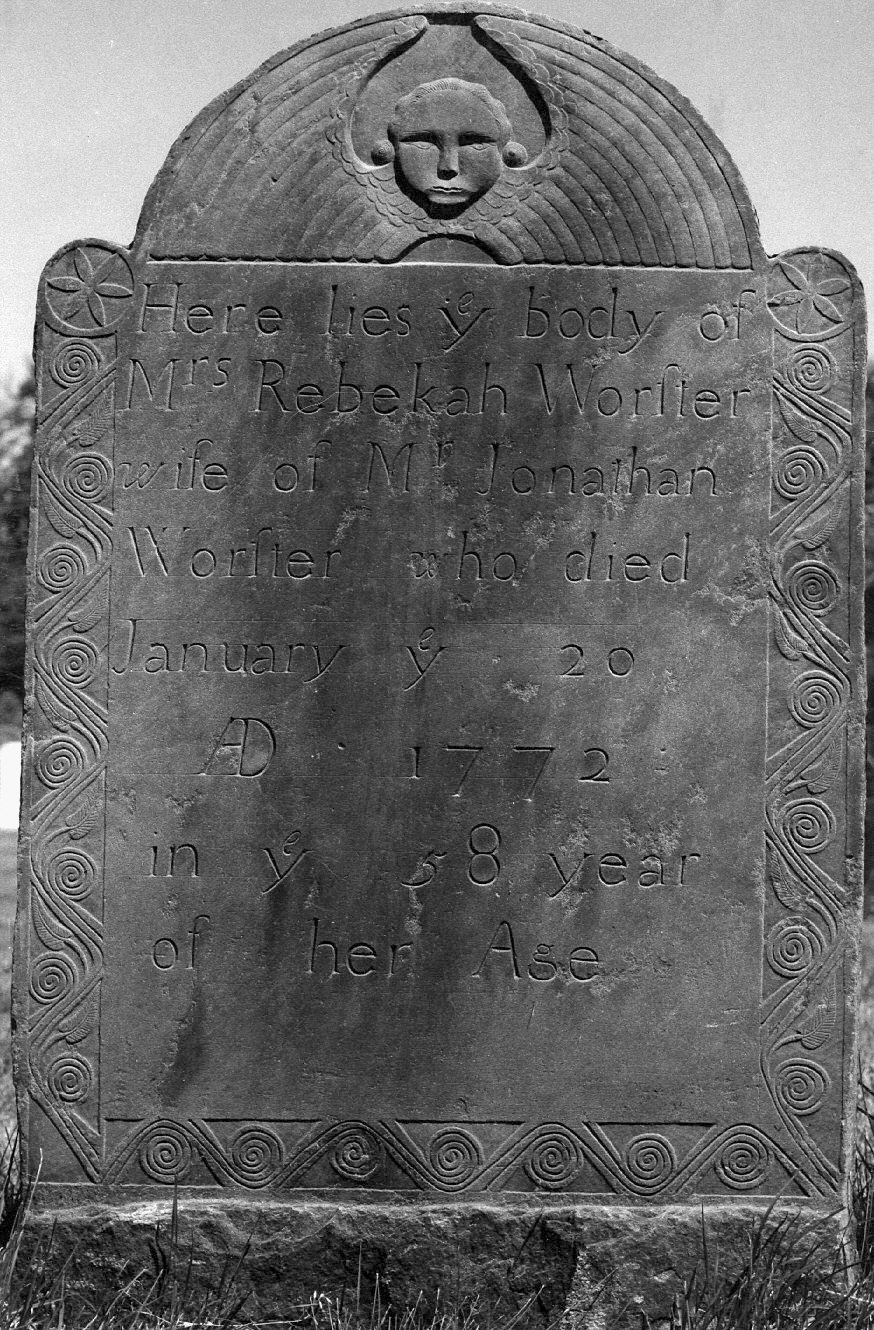 Here lies yͤ body of
Mrs Rebekah Worſter
wife of Mr. Jonathan
Worſter who died
January yͤ 20
ÆD · 1772 :
in yͤ 58 year
of her Age